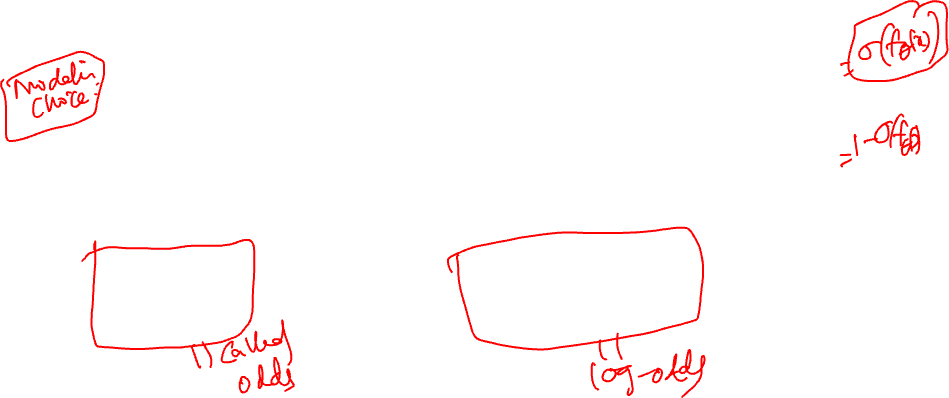 modelin
choice:
= σ(fθ(x))
= 1-σ(fθ)
called
odds
log-odds